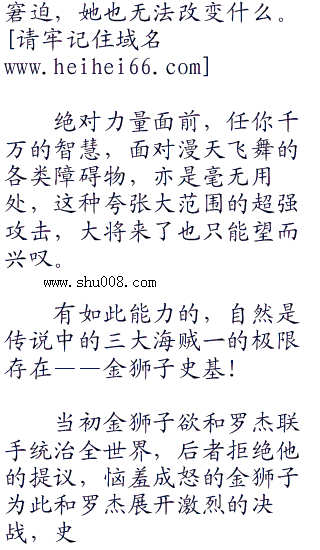 窘迫，她也无法改变什么。
[请牢记住域名
www.heihei66.com]
绝对力量面前，任你千
万的智慧，面对漫天飞舞的
各类障碍物，亦是毫无用
处，这种夸张大范围的超强
攻击，大将来了也只能望而
兴叹。
www.shu008.com
有如此能力的，自然是
传说中的三大海贼一的极限
存在——金狮子史基！
当初金狮子欲和罗杰联
手统治全世界，后者拒绝他
的提议，恼羞成怒的金狮子
为此和罗杰展开激烈的决
战，史